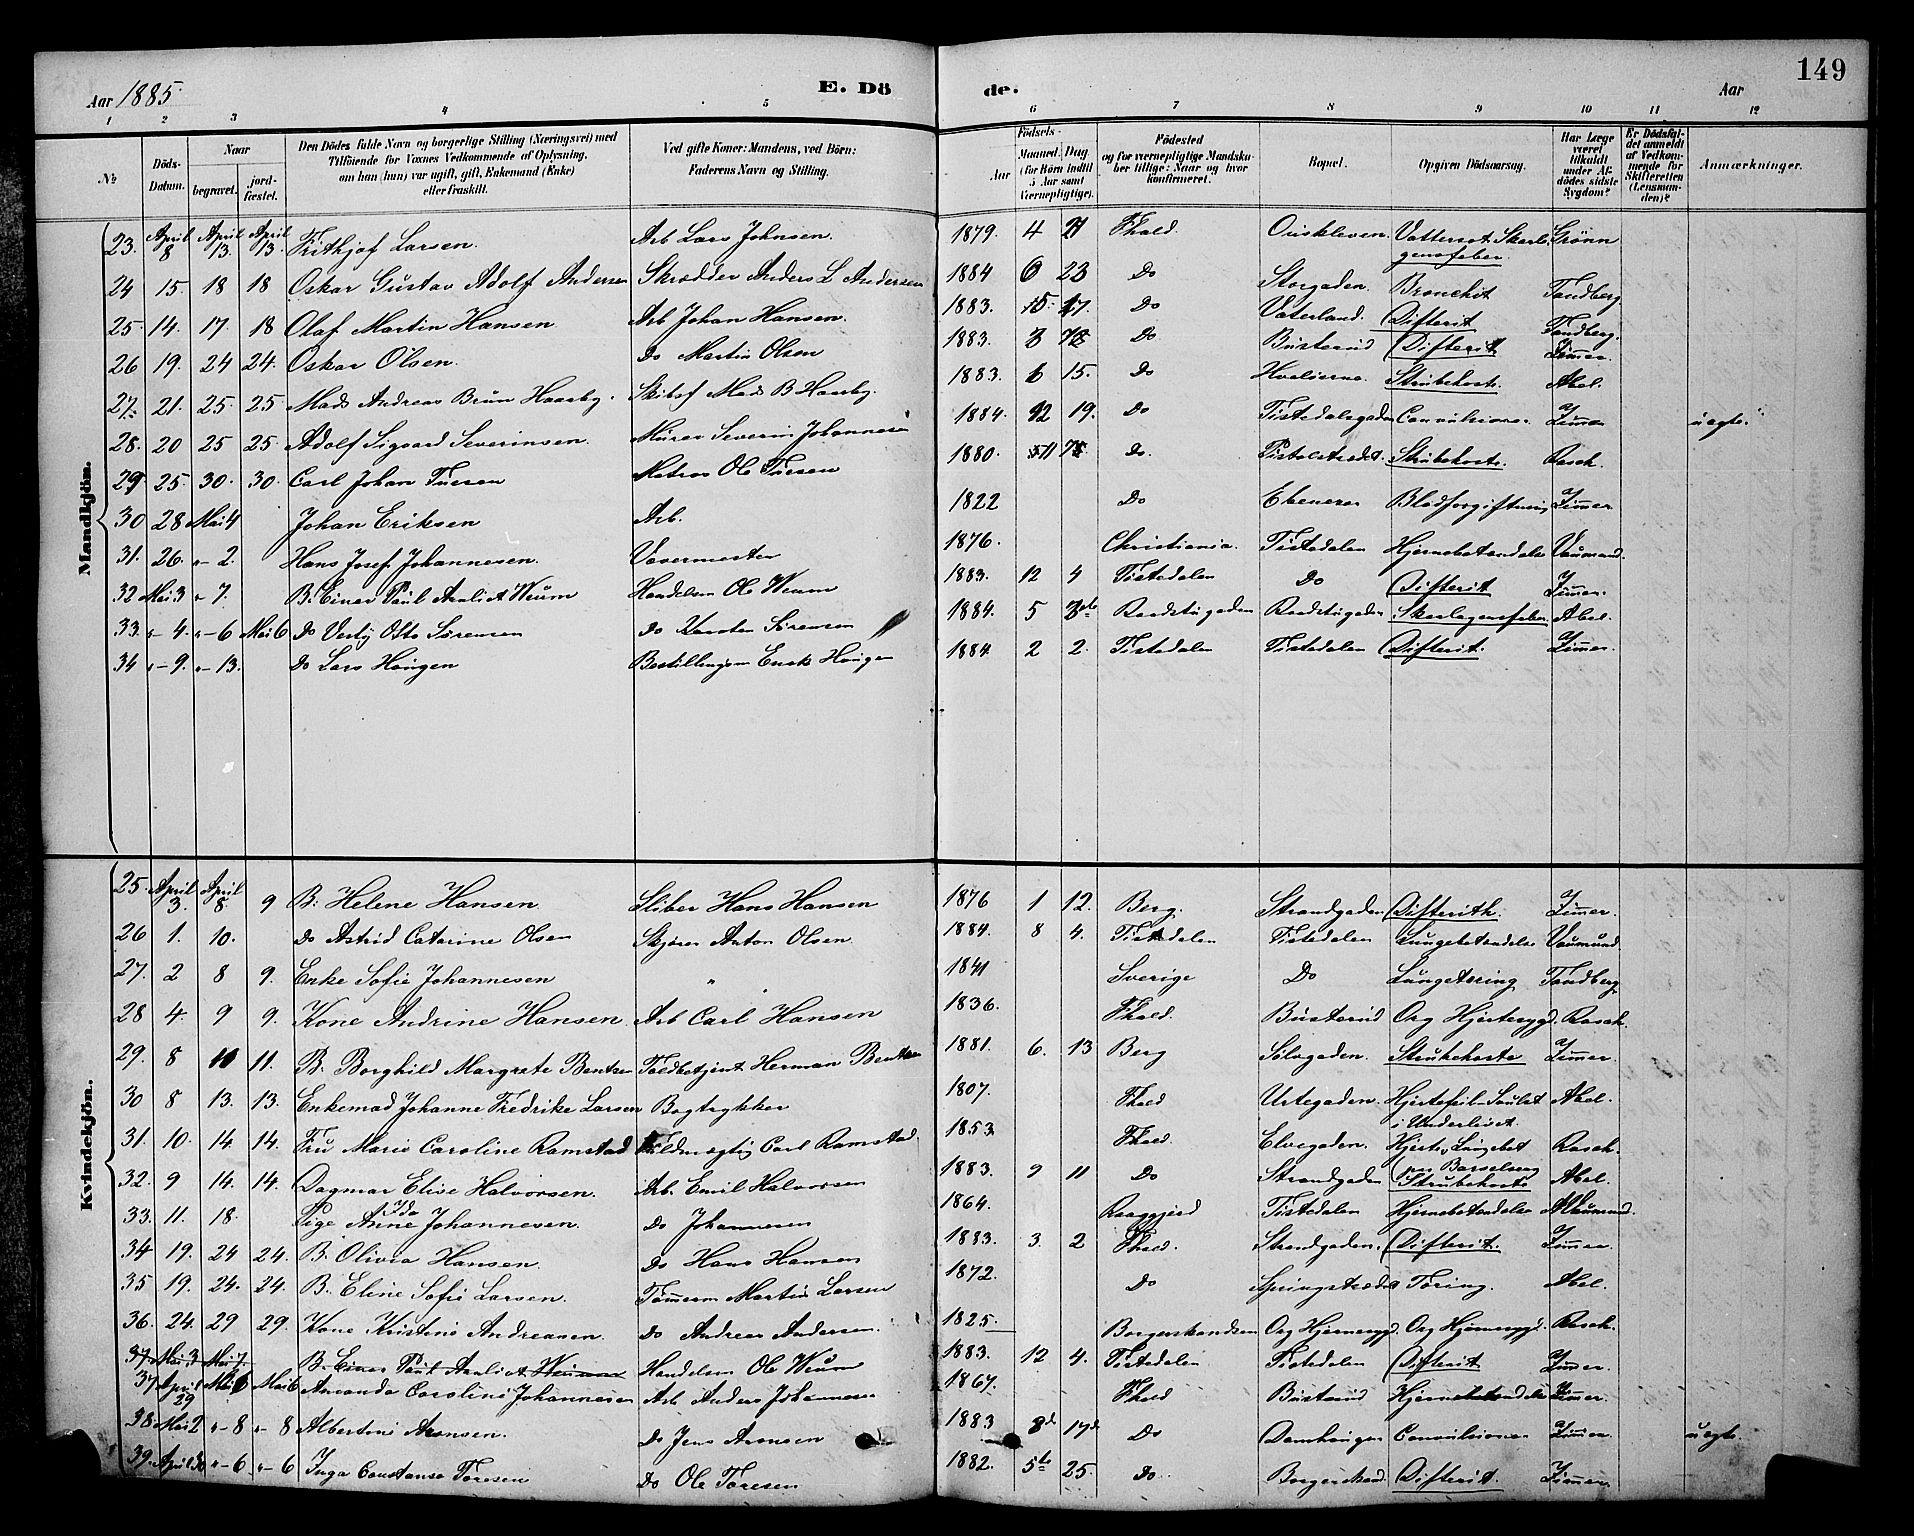 Aar 1885 E. Döde. Aar 149
1 2 3 4 5 6 7 8 9 10 11 12
№ Döds-Datum. Naar begravet. jordfæstet. Den Dödes fulde Navn og borgerlige Stilling (Næringsvei) med Tilföiende for Voxnes Vedkommende af Oplysning, om han (hun) var ugift, gift, Enkemand (Enke) eller fraskilt. Ved gifte Koner: Mandens, ved Börn: Faderens Navn og Stilling. Aar Födsels- Maaned. Dag (for Börn indtil 5 Aar samt Værnepligtige). Födested og for værnepligtige Mandskaber tillige: Naar og hvor konfirmeret. Bopæl. Opgiven Dödsaarsag. Har Læge været tilkaldt under Afdödes sidste Sygdom? Er Dödsfaldet anmeldt af Vedkommende for Skifteretten (Lensmanden)? Anmærkninger.
Mandkjön.
23. April 8 April 13. April 13. Frithjof Larsen. Arb Lars Johnsen. 1879. 4 Fhald. Vattersot Skarlagensfeber. Grønn
24 15. 18 18 Oskar Gustav Adolf Andersen Skrædder Anders L Andersen 1884 6 23 Do Storgaden. Bronchit Tandberg
25. 14. 17. 18 Olaf Martin Hansen Arb Johan Hansen. 1883. Do Vaterland. Difterit Tandberg.
26 19. 24 24. Oskar Olsen. Do Martin Olsen 1883. 3 Do Busterud Difterit Zimmer.
27. 21. 25. 25 Mads Andreas Brun Haarby. Skibsf Mads B Haarby. 1883. 6 15. Do Hvaløerne. Strubehoste. Abel.
28. 20 25 25. Adolf Sigvard Severinsen. Murer Severin Johannesen 1884. 12 19. Do Tistedalsgaden Convulsioner Zimmer uegte.
29 25. 30. 30. Carl Johan Tuesen Matros Ole Tuesen 1880. Do. Pistolstrædet. Strubehoste. Rasch.
30 28 Mai 4 Johan Eriksen Arb. 1822 Do Ebenezer Blodforgiftning Zimmer
31. 26. " 2. Hans Josef Johannesen. Vævermester 1876. Christiania. Tistedalen Hjernebetændelse Vaumund.
32 Mai 3 " 7. B. Einar Paul Weum Handelsm Ole Weum 1883. 12 4 Tistedalen Do Difterit Zimmer.
33. " 4. " 6 Mai 6 Do Otto Sørensen Do Karsten Sørensen 1884. 5 Raadstugaden Raadstugaden Skarlagensfeber Abel.
34 " 9. " 13. Do Lars Haugen Bestillingsm Haugen 1884. 2 2. Tistedalen Tistedalen Difterit. Zimmer.
Kvindekjön.
25. April 3. April 8 9 B. Helene Hansen. Sliber Hans Hansen 1876 1 12. Berg. Strandgaden Difterith. Zimmer.
26 1. 10. Do Astrid Catarine Olsen Anton Olsen. 1884. 8 4. Tistedalen Tistedalen Lungebetændelse Vaumund.
27. 2 8 9. Enke Sofie Johannesen " 1841 Sverige Do Lungetæring Tandberg
28 4. 9 9. Kone Andrine Hansen. Arb Carl Hansen 1836. Fhald. Busterud Org Hjertesygd. Rasch.
29. 8 10 11. B. Borghild Margrete Bentsen Toldbetjent Herman Bentsen 1881. 6. 13 Berg Sølvgaden. Strubehoste Zimmer.
30 8 13. 13. Enkemad Johanne Fredrike Larsen Bogtrykker 1807. Fhald Urtegaden. Hjertefeil-Saulst i Underlivet. Abel.
31. 10. 14 14. Fru Marie Caroline Ramstad Fuldmægtig Carl Ramstad. 1853. Fhald. Elvegaden. Hjerte, Lungebet Barselseng Rasch.
32. 9 14. 14. Dagmar Elise Halvorsen. Arb. Emil Halvorsen 1883. 9 11 Do Strandgaden Strubehoste Abel.
33. 11. 18. Pige Anne Ida Johannesen. Do Johannesen 1864. Tistedalen Hjernebetændelse Vaumund.
34 19. 24 24. B. Olivia Hansen. Do Hans Hansen 1883. 3. 2 Fhald. Strandgaden. Difterit. Zimmer
35 19. 24. 24. B. Eline Sofie Larsen. Tømmerm Martin Larsen 1872. Do Springstrædet Tæring. Abel.
36. 24. 29 29. Kone Kristine Andreasen. Do Andreas Andersen. 1825. Borgerskandsen Org Hjernesygd. Org Hjernesygd. Rasch.
37. Mai 3 Mai 7. B. Einar Paul Weum Handelsm Ole Weum 1883. 12 4. Tistedalen Tistedalen Difterit Zimmer.
37 April 29 Mai 6 Mai 6 Amanda Caroline Johannesen Arb Anders Johannesen 1867. Fhald Busterud Hjernebetændelse Zimmer.
38. Mai 2 " 8 " 8 Albertine Aronsen. Do Jens Aronsen 1883 17 Do Damhaugen Convulsioner Zimmer. uegte.
39. April 30 " 6 " 6 Inga Constanse Toresen Do Ole Toresen 1882. 5 25. Do. Borgerskand. Difterit. Zimmer